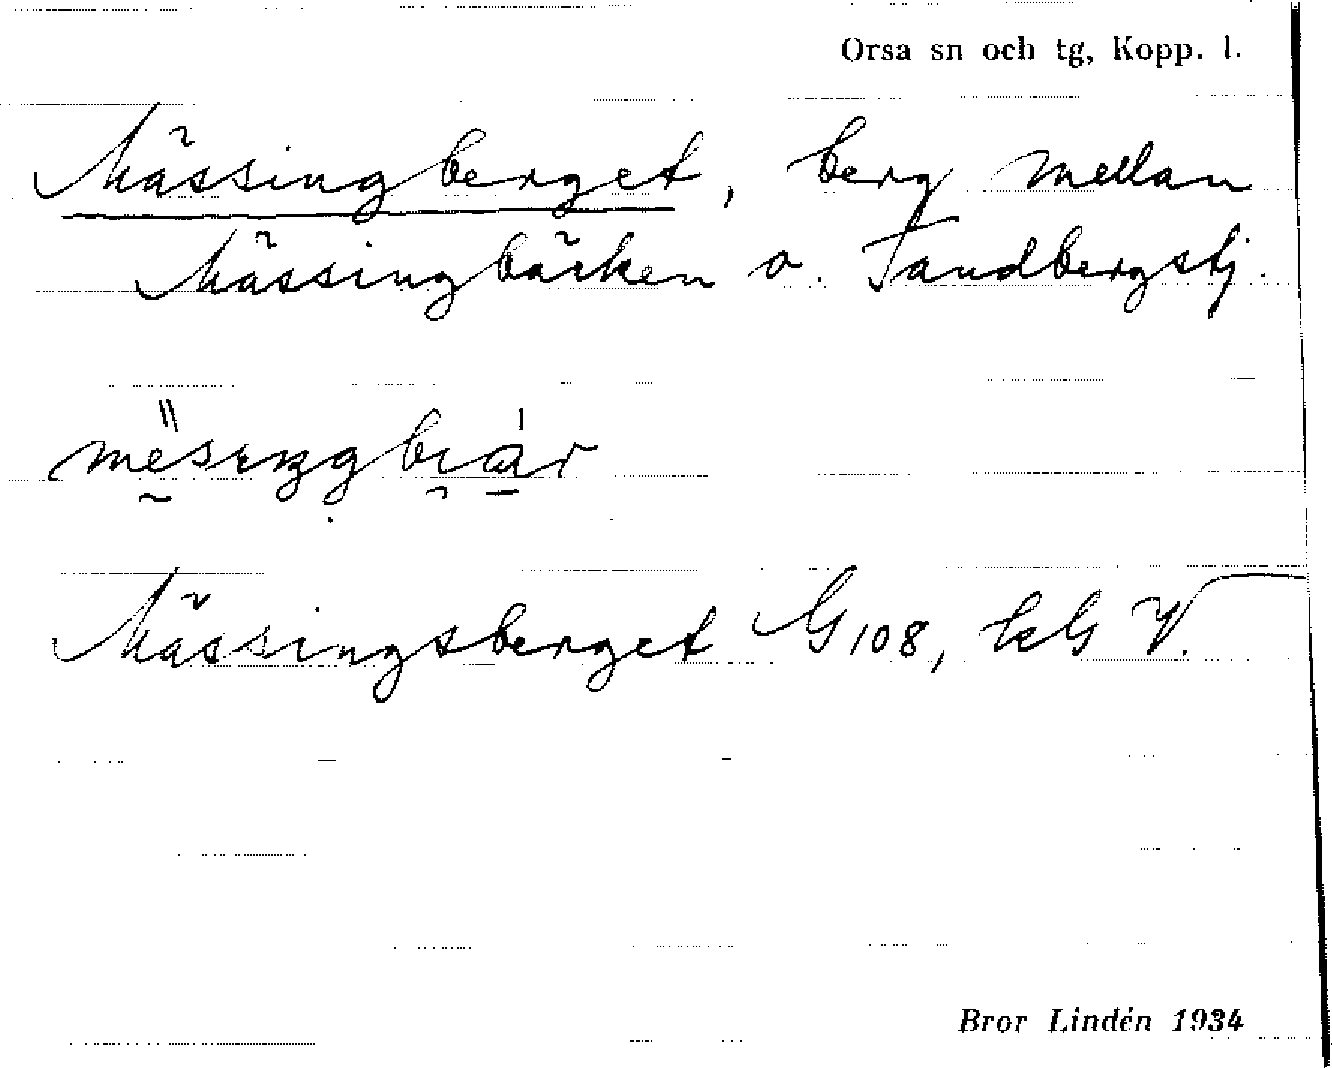 Orsa sn och tg, Kopp. l.
Mässingberget, berg mellan
Mässingbäcken o. Tandbergstj.
Mässingsberget G108, kG V.
Bror Lindén 1934